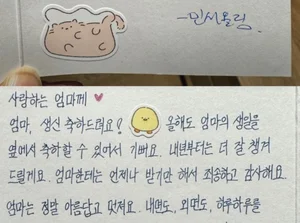 -민서올림.
사랑하는 엄마께 ♥
엄마, 생신 축하드려요! 올해도 엄마의 생일을
옆에서 축하할 수 있어서 기뻐요. 내년부터는 더 잘 챙겨
드릴게요. 엄마한테는 언제나 받기만 해서 죄송하고 감사해요.
엄마는 정말 아름답고 멋져요. 내면도, 외면도, 하루하루를